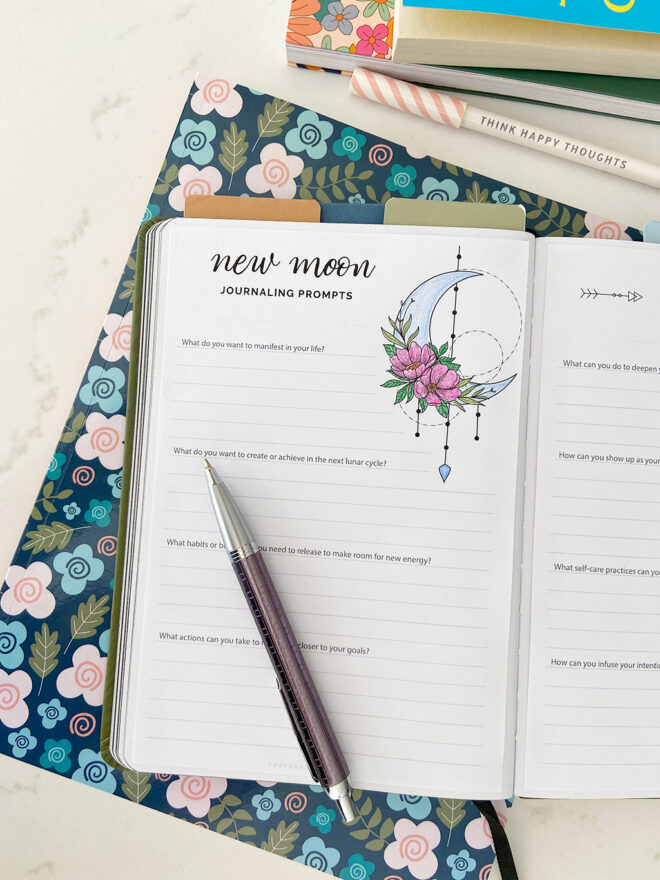 THINK HAPPY THOUGHTS
new moon
JOURNALING PROMPTS
What do you want to manifest in your life?
What do you want to create or achieve in the next lunar cycle?
What habits or b you need to release to make room for new energy?
What actions can you take to closer to your goals?
What can you do to deepen
How can you show up as your
What self-care practices can
How can you infuse your